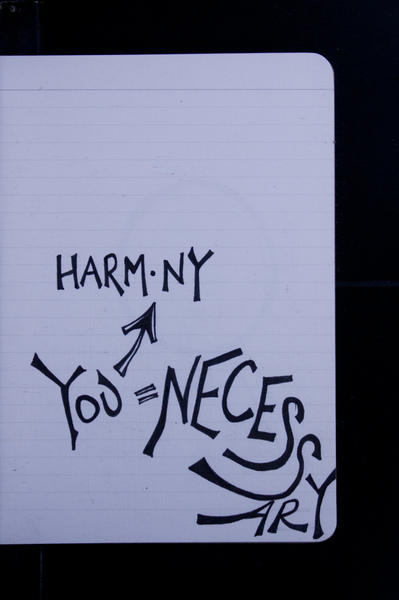 HARM·NY
YOU = NECESS
ARY